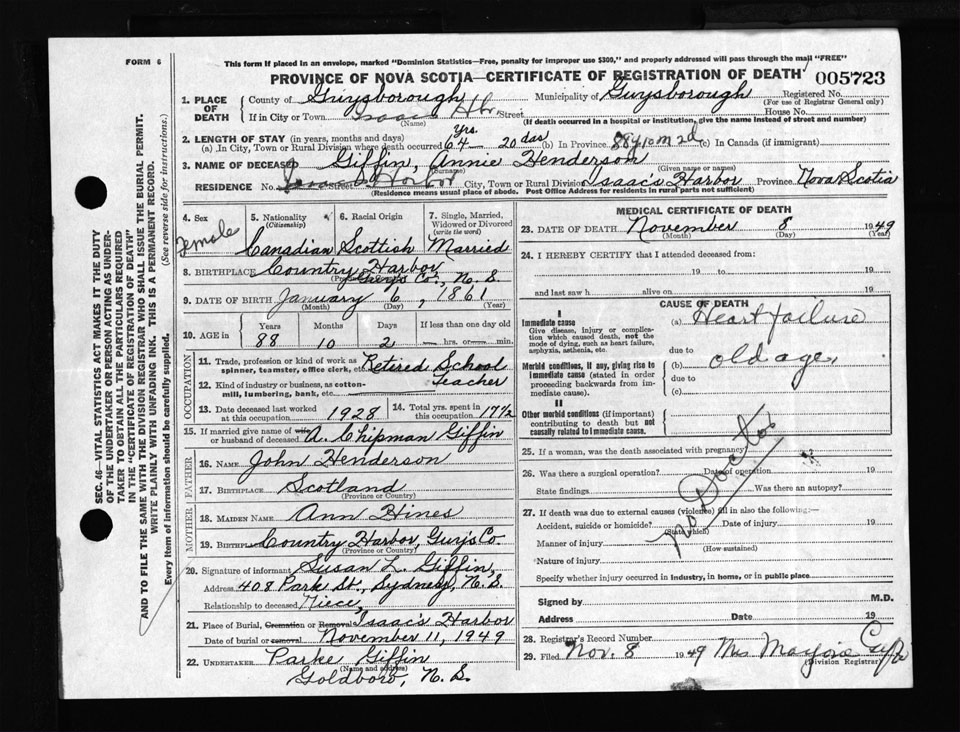 FORM 6
This form if placed in an envelope, marked "Dominion Statistics—Free, penalty for improper use $300," and properly addressed will pass through the mail "FREE"
PROVINCE OF NOVA SCOTIA—CERTIFICATE OF REGISTRATION OF DEATH 005723
1. PLACE OF DEATH County of Guysborough Municipality of Guysborough Registered No. (For use of Registrar General only)
If in City or Town Isaac's Hbr. (Name) Street House No.
(If death occurred in a hospital or institution, give the name instead of street and number)
2. LENGTH OF STAY (in years, months and days)
(a) In City, Town or Rural Division where death occurred 64 Yrs 20 das (b) In Province 88y 10m 2d (c) In Canada (if immigrant)
3. NAME OF DECEASED Giffin, Annie Henderson
(Surname) (Given name or names)
RESIDENCE No. Isaac's Harbor Street City, Town or Rural Division Isaac's Harbor Province Nova Scotia
(Residence means usual place of abode. Post Office Address for residents in rural parts not sufficient)
SEC. 46—VITAL STATISTICS ACT MAKES IT THE DUTY
OF THE UNDERTAKER OR PERSON ACTING AS UNDER-
TAKER TO OBTAIN ALL THE PARTICULARS REQUIRED
IN THE "CERTIFICATE OF REGISTRATION OF DEATH"
AND TO FILE THE SAME WITH THE DIVISION REGISTRAR WHO SHALL ISSUE THE BURIAL PERMIT.
WRITE PLAINLY WITH UNFADING INK. THIS IS A PERMANENT RECORD.
Every item of information should be carefully supplied. (See reverse side for instructions.)
4. Sex Female
5. Nationality (Citizenship) Canadian
6. Racial Origin Scottish
7. Single, Married, Widowed or Divorced (write the word) Married
8. BIRTHPLACE Country Harbor
Guys Co., N.S.
9. DATE OF BIRTH January 6, 1861
(Month) (Day) (Year)
10. AGE in Years Months Days If less than one day old
88 10 2 hrs. or min.
OCCUPATION
11. Trade, profession or kind of work as spinner, teamster, office clerk, etc. Retired School
12. Kind of industry or business, as cotton-mill, lumbering, bank, etc. Teacher
13. Date deceased last worked at this occupation 1928
14. Total yrs. spent in this occupation 17½
15. If married give name of wife or husband of deceased A. Chipman Giffin
FATHER
16. NAME John Henderson
17. BIRTHPLACE Scotland
(Province or Country)
MOTHER
18. MAIDEN NAME Ann Hines
19. BIRTHPLACE Country Harbor, Guys Co
(Province or Country)
20. Signature of informant Susan L. Giffin,
Address 408 Park St., Sydney, N.S.
Relationship to deceased Niece,
21. Place of Burial, Cremation or Removal Isaac's Harbor
Date of burial or removal November 11, 1949
22. UNDERTAKER Parke Giffin
(Name and address)
Goldboro, N.S.
MEDICAL CERTIFICATE OF DEATH
23. DATE OF DEATH November 8 1949
(Month) (Day) (Year)
24. I HEREBY CERTIFY that I attended deceased from:
19 to 19
and last saw h alive on 19
CAUSE OF DEATH
I
Immediate cause (a) Heart failure
Give disease, injury or complica-
tion which caused death, not the
mode of dying, such as heart failure,
asphyxia, asthenia, etc.
due to old age,
Morbid conditions, if any, giving rise to (b)
immediate cause (stated in order due to
proceeding backwards from im-
mediate cause). (c)
II
Other morbid conditions (if important)
contributing to death but not
causally related to immediate cause.
25. If a woman, was the death associated with pregnancy
26. Was there a surgical operation? Date of operation 19
State findings Was there an autopsy?
No Doctor
27. If death was due to external causes (violence) fill in also the following:—
Accident, suicide or homicide? Date of injury 19
(State which)
Manner of injury
(How sustained)
Nature of injury
Specify whether injury occurred in industry, in home, or in public place
Signed by M.D.
Address Date 19
28. Registrar's Record Number
29. Filed Nov. 8 1949 Mrs Marjorie
(Division Registrar)